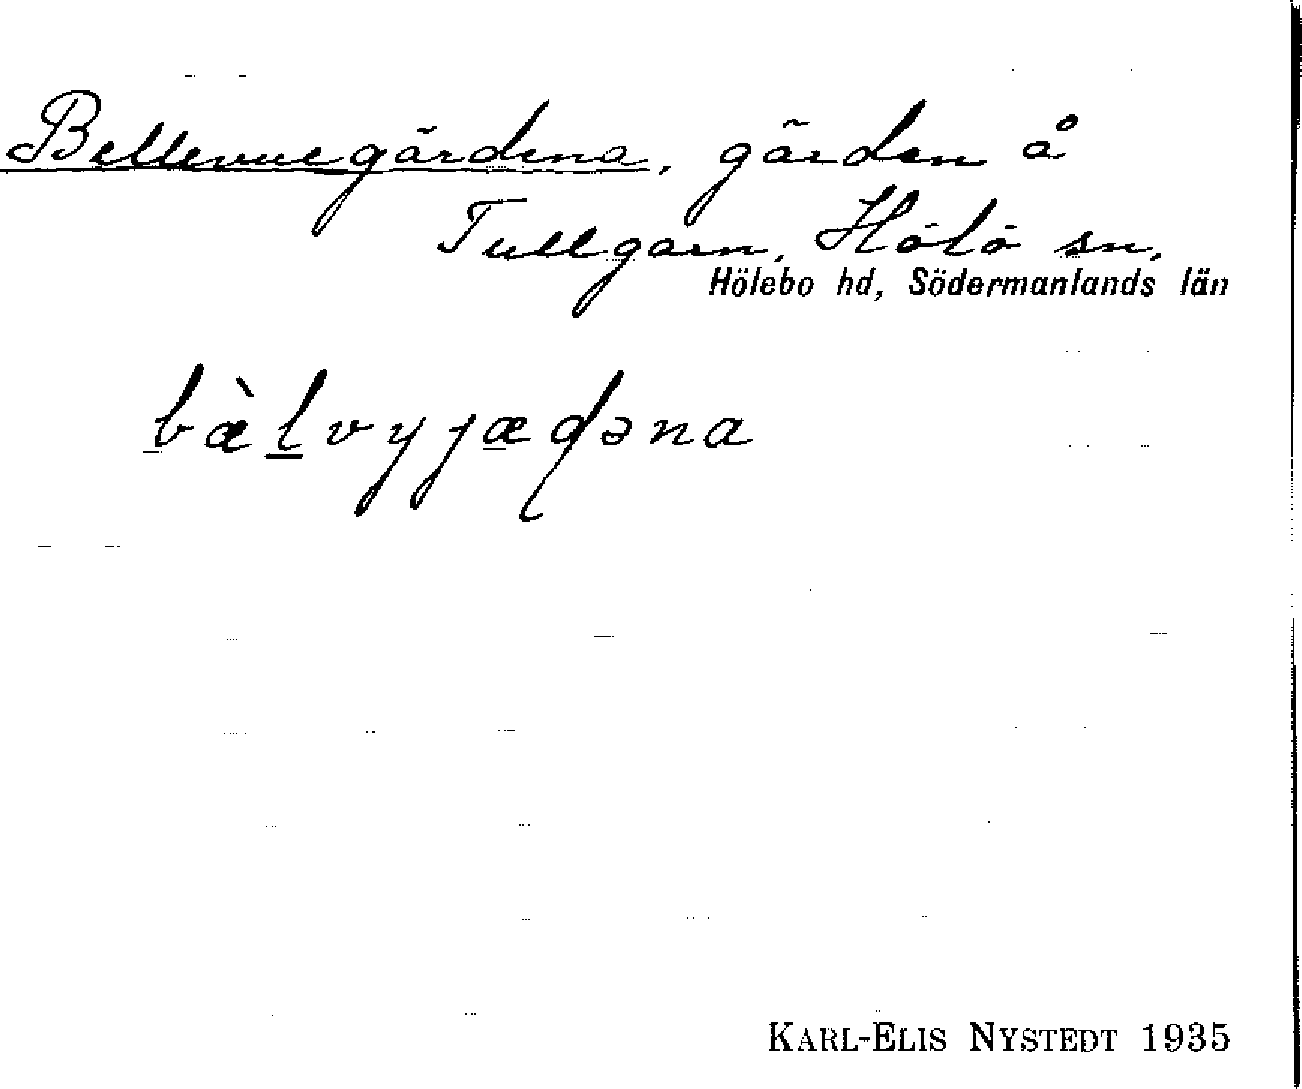 Bellevuegärdena, gärden å
Tullgarn, Hölö sn,
Hölebo hd, Södermanlands län
bæ̀lvyjædəna
KARL-ELIS NYSTEDT 1935